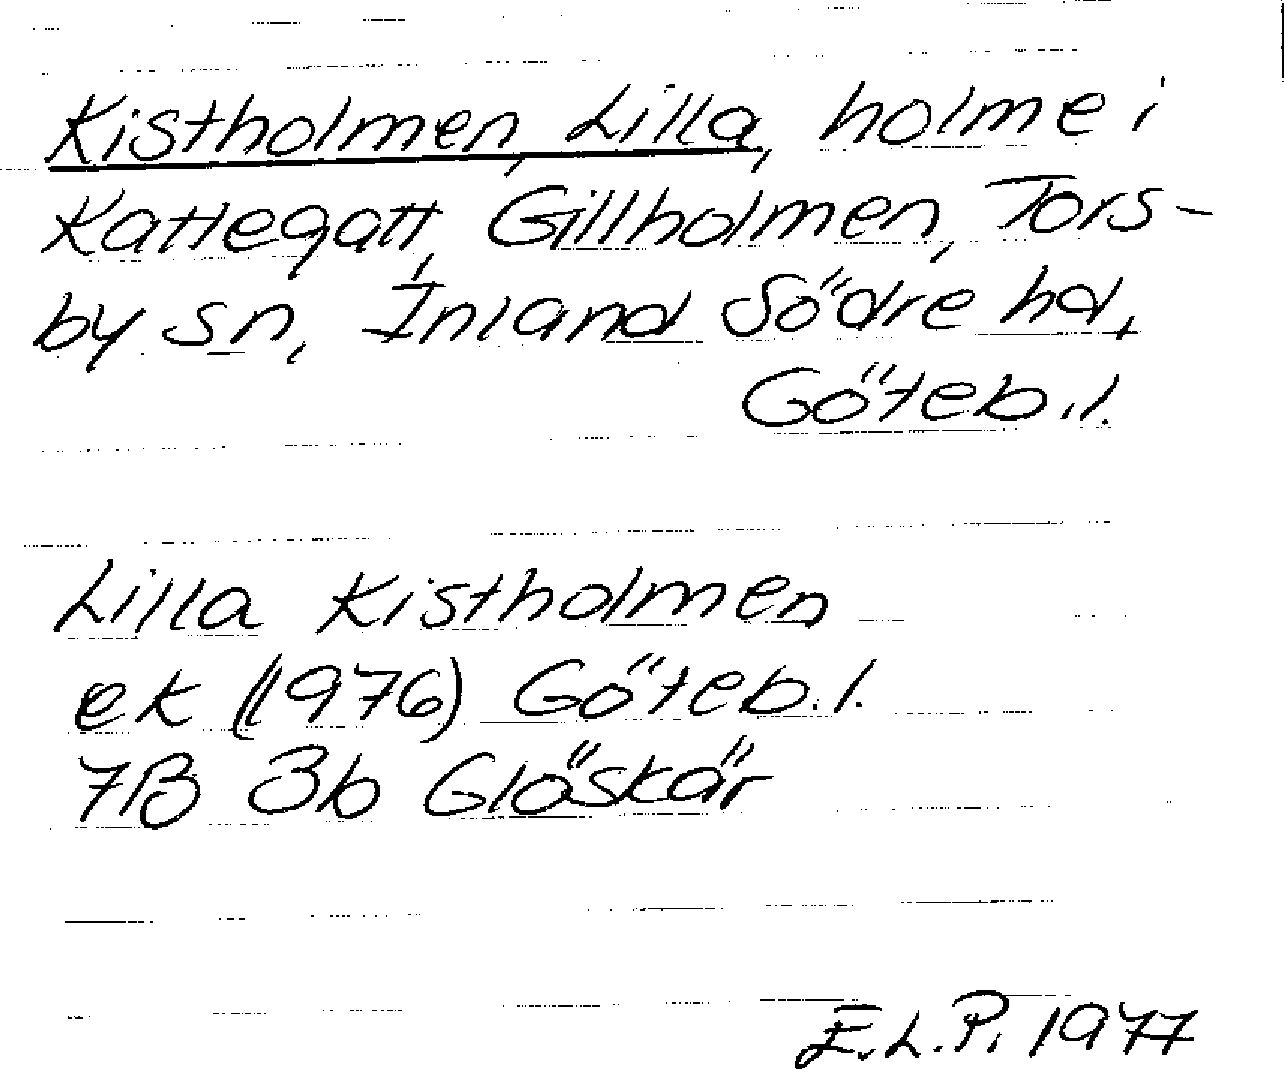 Kistholmen, Lilla, holme i
Kattegatt, Gillholmen, Tors-
by sn, Inland Södre hd,
Göteb.l.
Lilla Kistholmen
ek (1976) Göteb.l.
7B 3b Glöskär
E.L.P. 1977